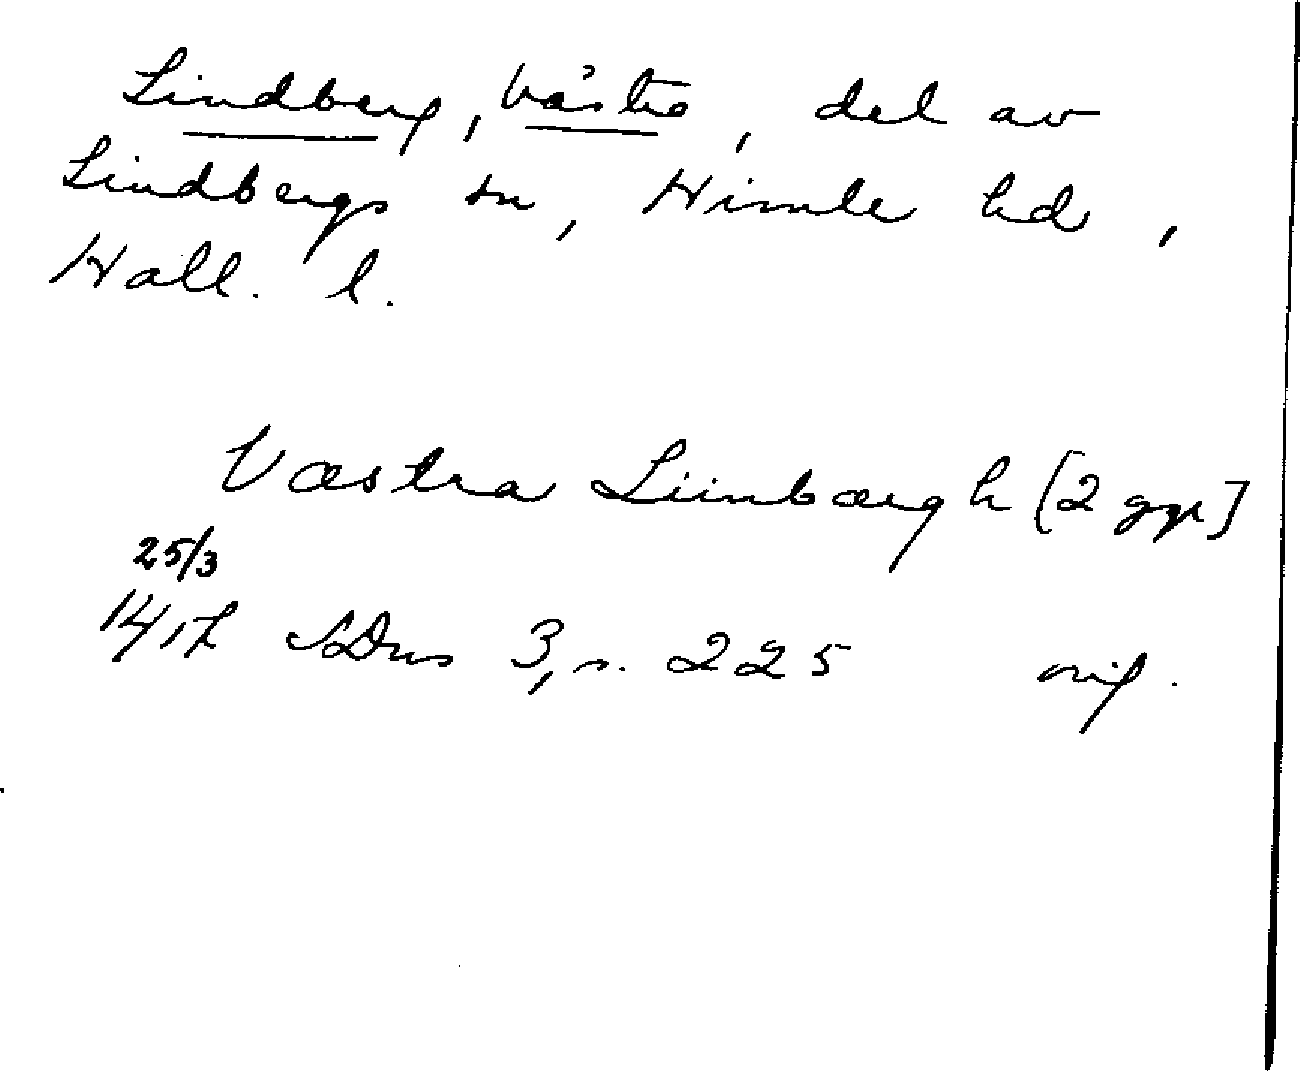 Lindberg, Västra, del av
Lindbergs sn, Himle hd,
Hall. l.
Væstra Liinbærgh [2 ggr]
25/3
1417 SDns 3, s. 225 orig.